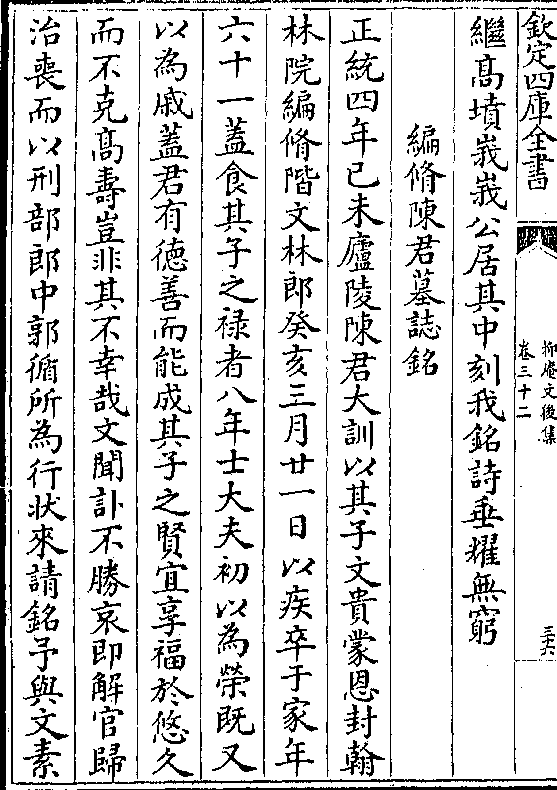 欽定四庫全書
抑庵文後集
卷三十二
三六
繼高墳峩峩公居其中刻我銘詩垂耀無窮
編脩陳君墓誌銘
正統四年己未廬陵陳君大訓以其子文貴蒙恩封翰
林院編脩階文林郎癸亥三月廿一日以疾卒于家年
六十一蓋食其子之禄者八年士大夫初以為榮既又
以為戚蓋君有德善而能成其子之賢宜享福於悠久
而不克高壽豈非其不幸哉文聞訃不勝哀即解官歸
治喪而以刑部郎中郭循所為行狀來請銘予與文素